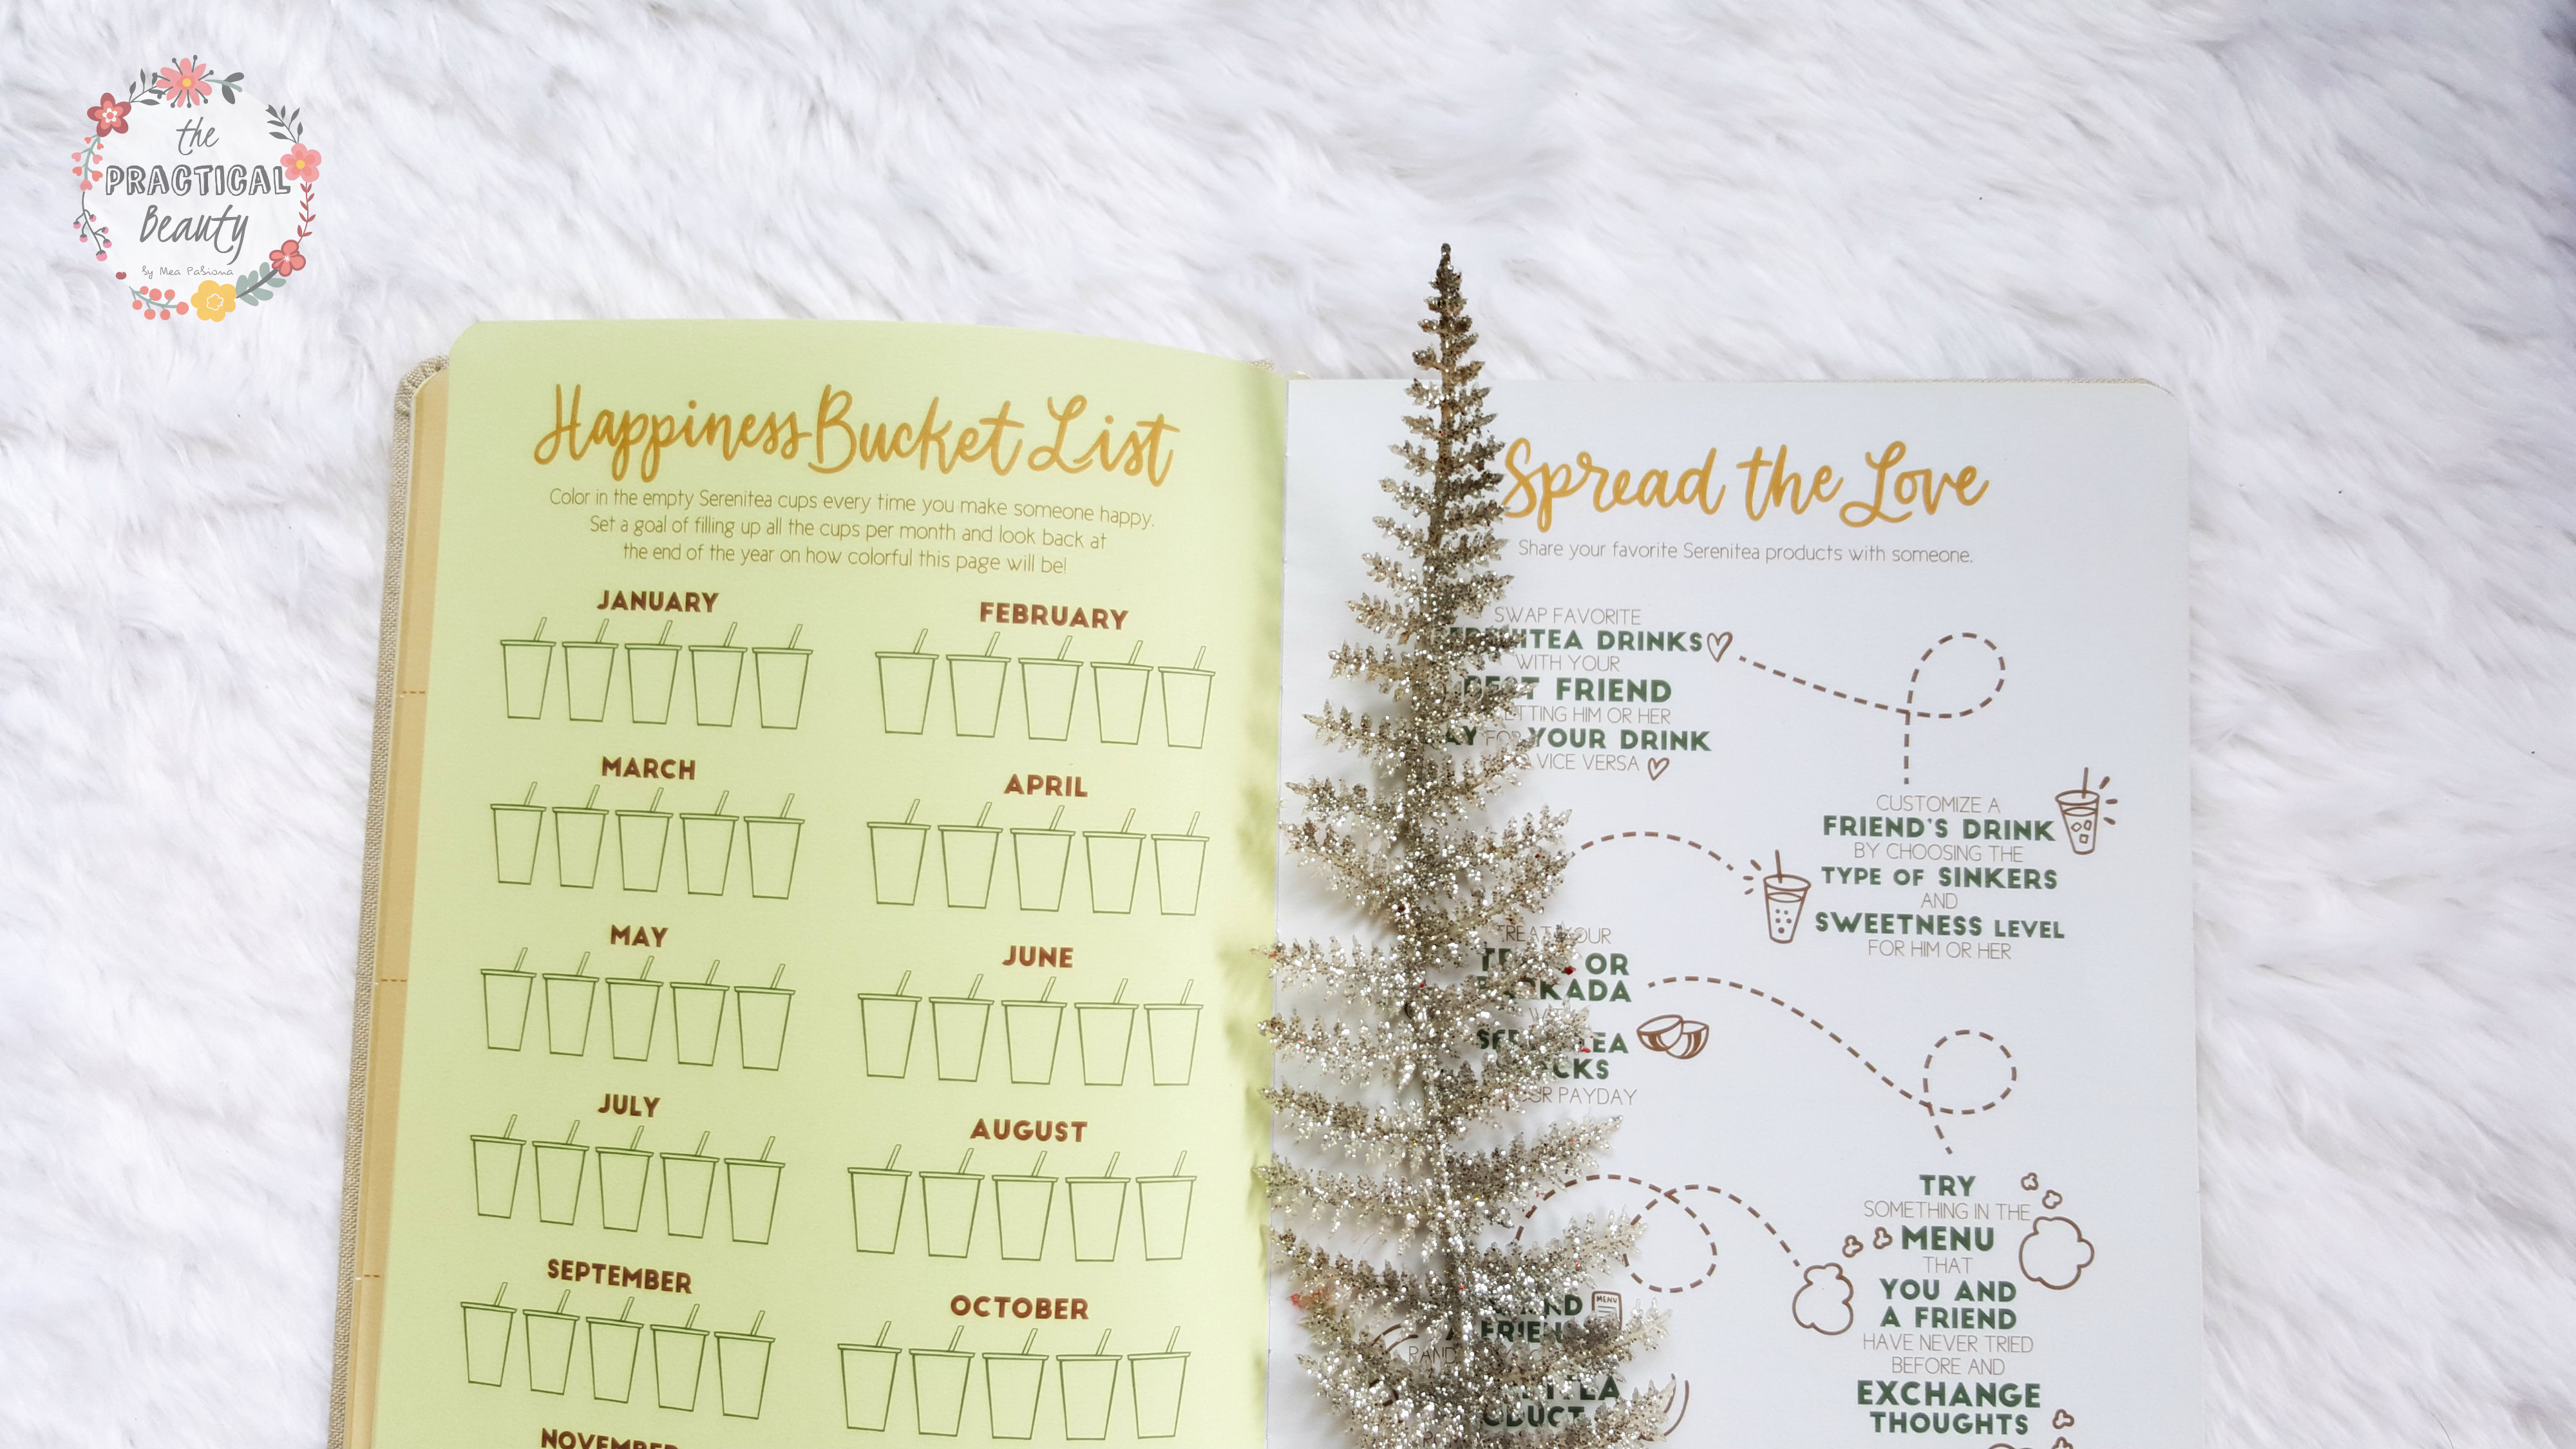 the
PRACTICAL
Beauty
by Mea Pabiona
Happiness Bucket List
Color in the empty Serenitea cups every time you make someone happy.
Set a goal of filling up all the cups per month and look back at
the end of the year on how colorful this page will be!
JANUARY
FEBRUARY
MARCH
APRIL
MAY
JUNE
JULY
AUGUST
SEPTEMBER
OCTOBER
NOVEMBER
Spread the Love
Share your favorite Serenitea products with someone.
SWAP FAVORITE
DRINKS
WITH YOUR
BEST FRIEND
HIM OR HER
YOUR DRINK
VICE VERSA
CUSTOMIZE A
FRIEND'S DRINK
BY CHOOSING THE
TYPE OF SINKERS
AND
SWEETNESS LEVEL
FOR HIM OR HER
OR
PAYDAY
TRY
SOMETHING IN THE
MENU
THAT
YOU AND
A FRIEND
HAVE NEVER TRIED
BEFORE AND
EXCHANGE
THOUGHTS
MENU